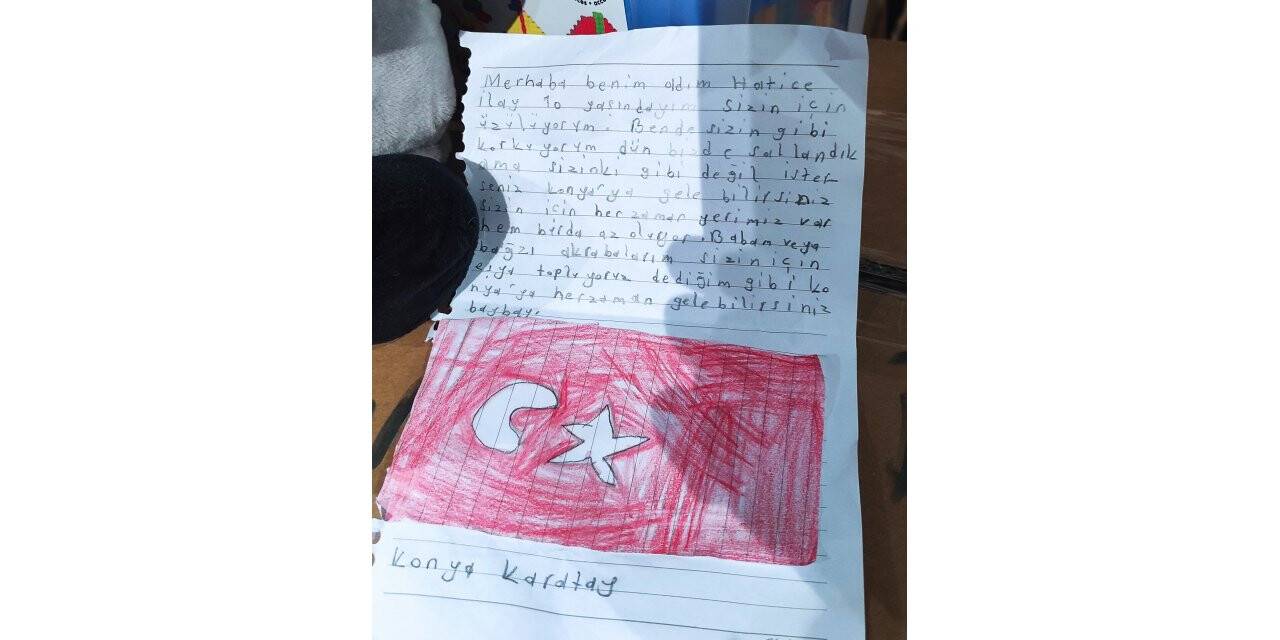 Merhaba benim adım Hatice
ilay 10 yaşındayım sizin için
üzülüyorum. Bende sizin gibi
korkuyorum dün bizde sallandık
ama sizinki gibi değil ister
seniz konya'ya gele bilirsiniz
sizin için her zaman yerimiz var
hem burda az oluyor. Babam veya
bağzı akrabalarım sizin için
eşya toplıyoruz dediğim gibi ko
nya'ya herzaman gelebilirsiniz
baybay.
Konya Karatay